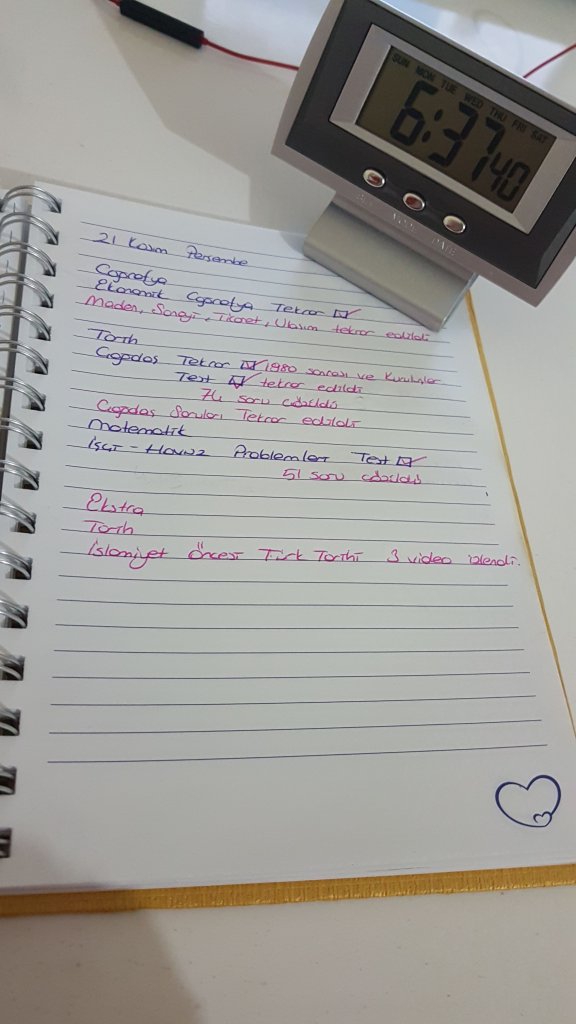 SUN MON TUE WED THU FRI SAT
6:37 40
21 Kasım Perşembe
Coğrafya
Ekonomik Coğrafya Tekrar ☑
Maden, Sanayi, Ticaret, Ulaşım tekrar edildi
Tarih
Çağdaş Tekrar ☑ 1980 sonrası ve Kuruluşlar
Test ☑ tekrar edildi
74 soru çözüldü
Çağdaş Soruları Tekrar edildi
Matematik
İşçi - Havuz Problemleri Test ☑
51 soru çözüldü
Ekstra
Tarih
İslamiyet Öncesi Türk Tarihi 3 video izlendi.